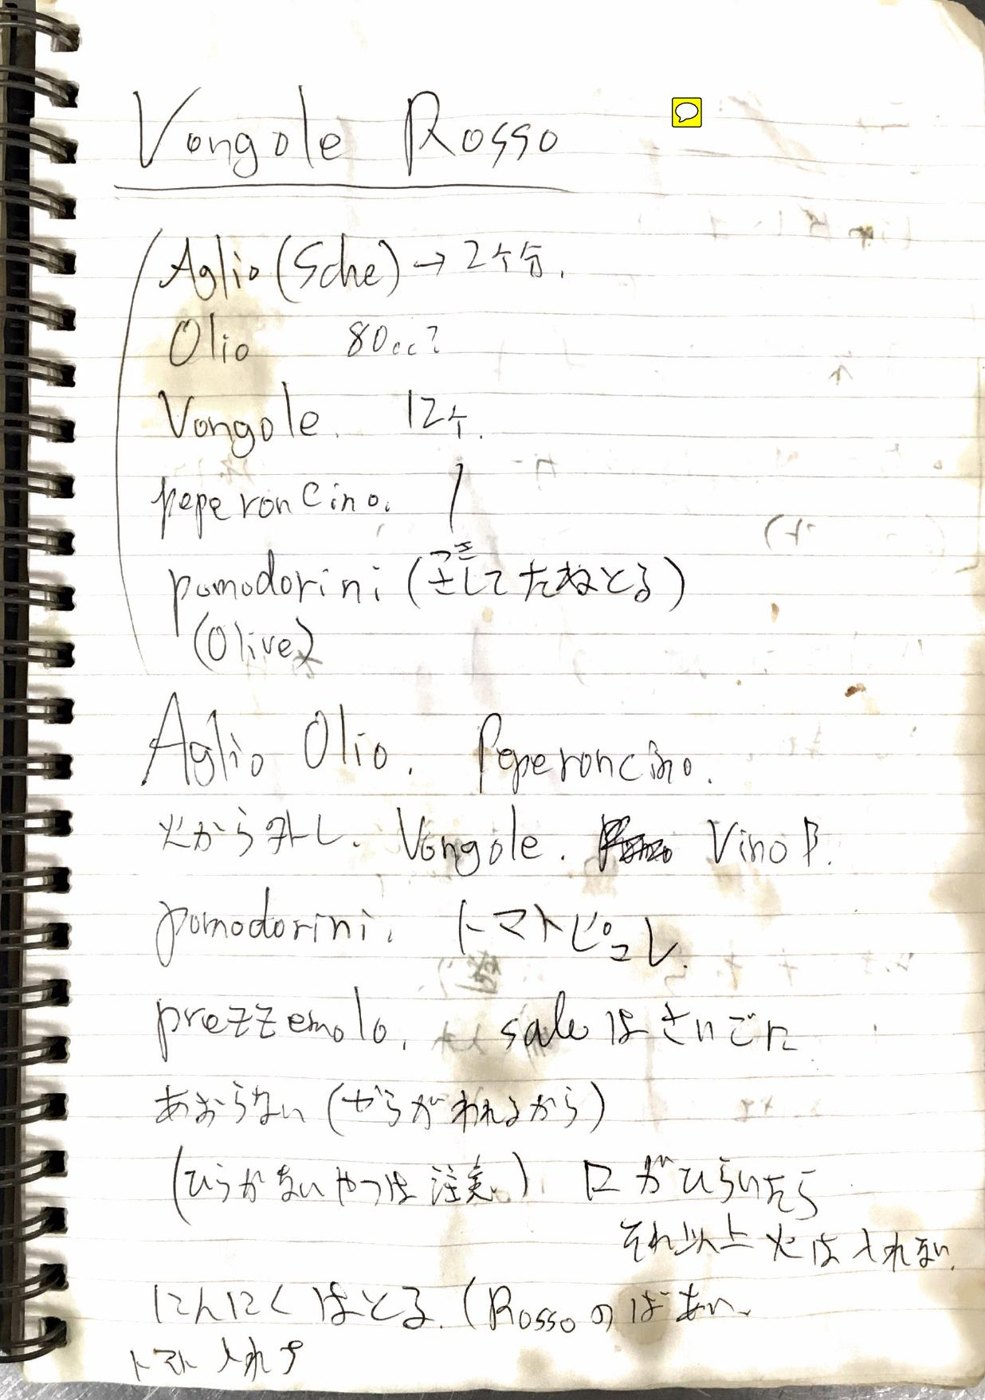 Vongole Rosso
Aglio (Sche) → 2ケ分.
Olio 80cc?
Vongole. 12ケ.
peperoncino. 1
pomodorini (つきさしてたねとる)
(Olive)
Aglio Olio. Peperoncino.
火から外し. Vongole. Vino B.
pomodorini. トマトピュレ.
prezzemolo. saleはさいごに
あおらない (からがわれるから)
(ひらかないやつは注意) 口がひらいたら
それ以上火は入れない.
にんにくはとる. (Rossoのばあい.
トマト入れ